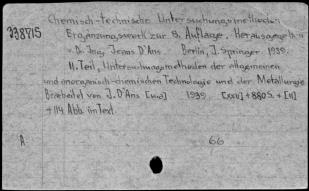 338715
Chemisch-technische Untersuchungsmethoden
Ergänzungswerk zur 8. Auflage. Herausgegeben
v. Dr. Ing. Jeans D'Ans. Berlin, J. Springer 1939.
II. Teil, Untersuchungsmethoden der allgemeinen
und anorganisch-chemischen Technologie und der Metallurgie
Bearbeitet von J. D'Ans [u.a.] 1939. [XXII] + 880 S. + [11]
+ 114 Abb. im Text.
A 66